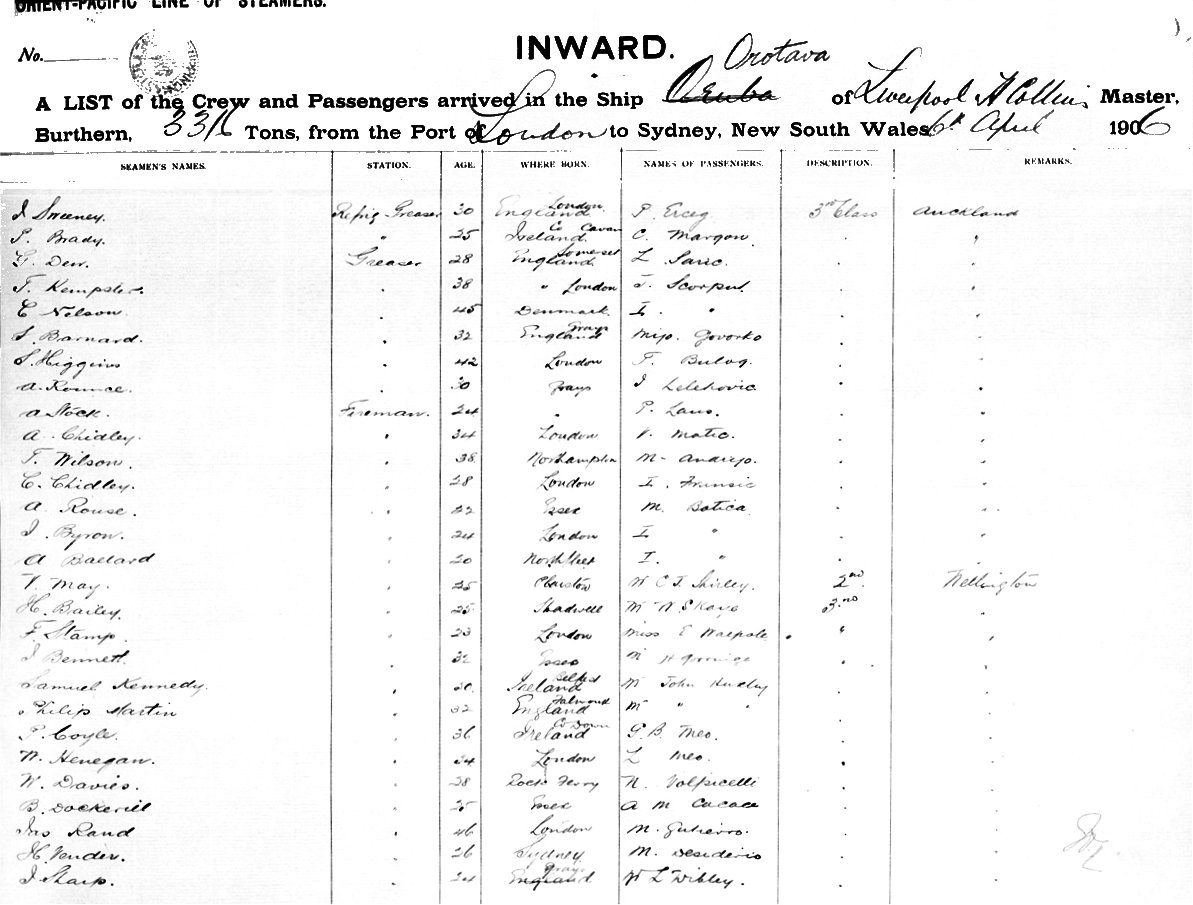 ORIENT-PACIFIC LINE OF STEAMERS.
No.
INWARD.
Orotava
A LIST of the Crew and Passengers arrived in the Ship Oruba of Liverpool A Collins, Master,
Burthern, Tons, from the Port of London to Sydney, New South Wales 6th April 1906
SEAMEN'S NAMES. STATION. AGE. WHERE BORN. NAMES OF PASSENGERS. DESCRIPTION. REMARKS.
J Sweeney. Refrig Greaser 30 England London P. Erceg 3rd Class Auckland
P. Brady. " 25 Ireland Co Cavan C. Margon
G. Dew. Greaser 28 England Somerset L Saric.
T. Kempster. 38 " London J.
C Nelson. 45 Denmark I. "
S. Barnard. 32 England Grays Mijo. Govorko
S. Higgins 42 London T. Bulog.
A. Rounce. 30 Grays J Lelekovic
A Stock. Fireman. 24 " P. Laus.
A. Chidley. 34 London V. Matic.
T. Wilson. 38 Northampton M. Andrijo.
C. Chidley. 28 London I. Fransic
A. Rouse. 22 Essex M. Batica
J. Byron. 24 London I "
A Ballard 20 I. "
V. May. 25 W C J. Shirley. 2nd. Wellington
H. Bailey. 25 Shadwell Mr W Skaye 3rd
F. Stamp. 23 London Miss E Walpole "
J Bennett. 32 Essex Mr H
Samuel Kennedy. 30 Ireland Belfast Mr John Huxley
Philip Martin 32 England Falmouth Mr " "
P. Coyle. 36 Ireland Co Down G. B. Meo.
W. Henegan. 34 London L Meo.
W. Davies. 38 Rock Ferry N. Volpicelli
B. Dockerill 25 Essex A M Cacace
Jas Rand 46 London M. Gutierro.
H. Vender. 26 Sydney M. Desiderio
J Sharp. 24 England Grays W L Dibley.